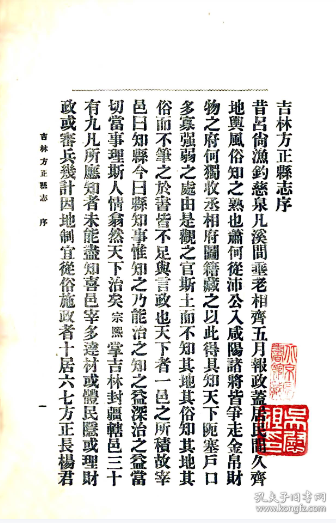 吉林方正縣志序
昔呂尙漁釣慈泉凡溪間垂老相齊五月報政蓋居民間久齊
地輿風俗知之熟也蕭何從沛公入咸陽諸將皆爭走金帛財
物之府何獨收丞相府圖籍藏之以此得具知天下阨塞戶口
多寡强弱之處由是觀之官斯土而不知其地其俗知其地其
俗而不筆之於書皆不足與言政也天下者一邑之所積故宰
邑曰知縣今曰縣知事惟知之乃能治之知之益深治之益當
切當事理斯人情翕然天下治矣宗熙掌吉林封疆轄邑三十
有九凡所應知者未能盡知喜邑宰多達材或體民隱或理財
政或審兵幾計因地制宜從俗施政者十居六七方正長楊君
吉林方正縣志 序
一
孔夫子旧书网